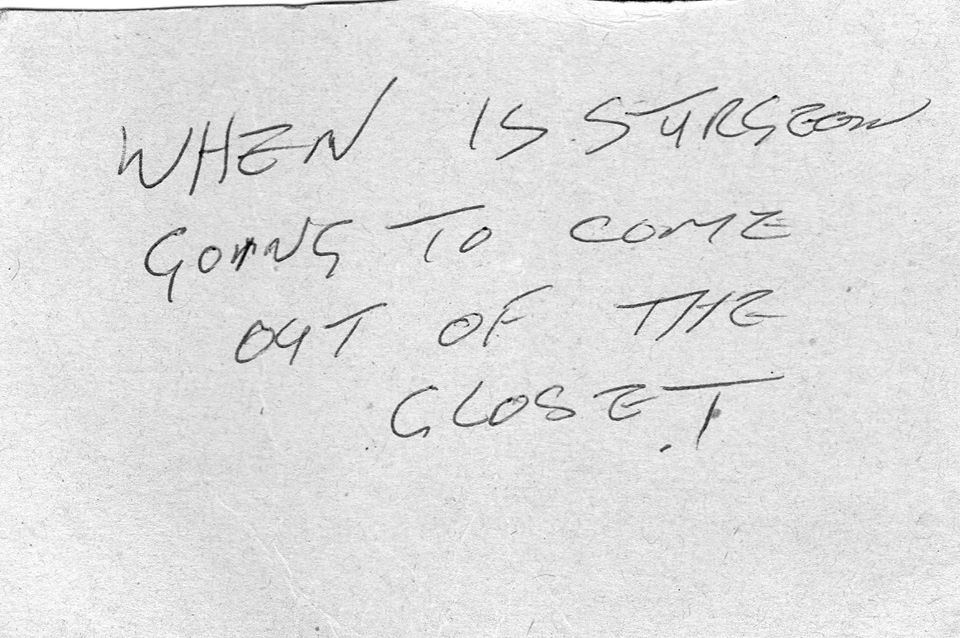 WHEN IS STURGEON
GOING TO COME
OUT OF THE
CLOSET